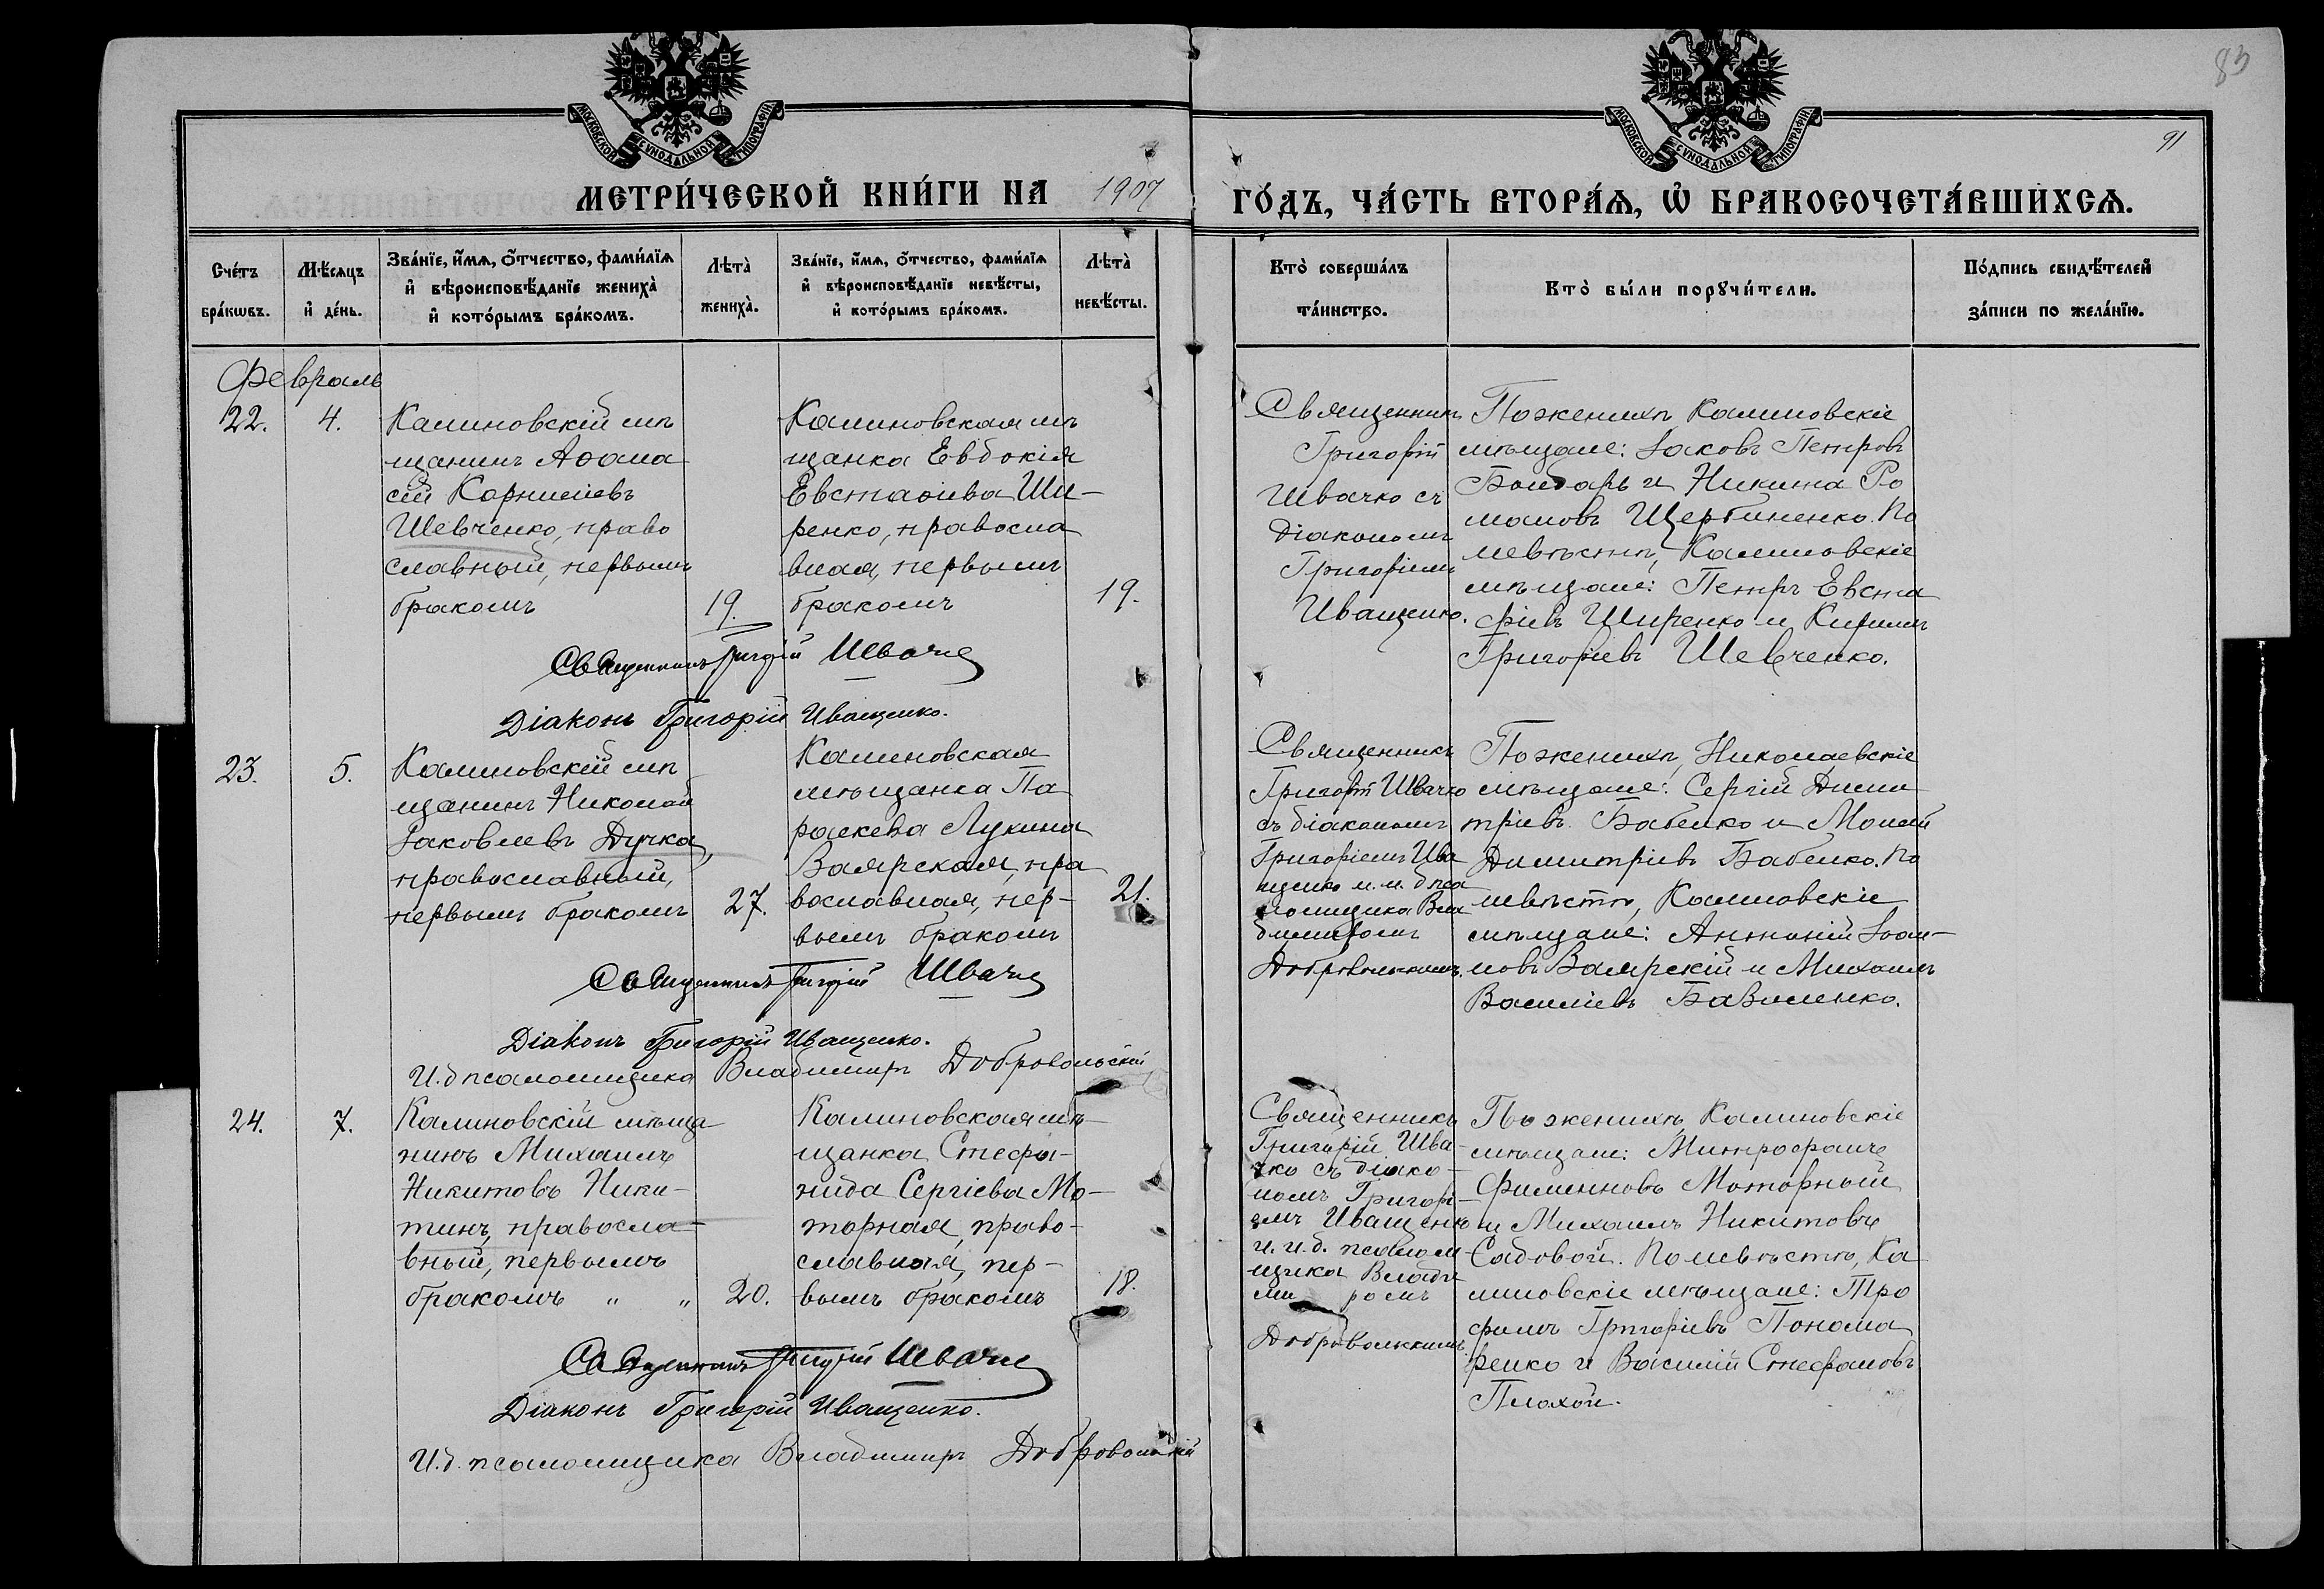 83
91
МОСКОВСКОЙ СѴНОДАЛЬНОЙ ТИПОГРАФІИ
МОСКОВСКОЙ СѴНОДАЛЬНОЙ ТИПОГРАФІИ
МЕТРИ́ЧЕСКОЙ КНИ́ГИ НА 1907 ГО́ДЪ, ЧА́СТЬ ВТОРА́Ѧ, Ѽ БРАКОСОЧЕТА́ВШИХСѦ.
Сче́тъ
бра́кѡвъ.
Мѣ́сѧцъ
и҆ де́нь.
Зва́нїе, и҆́мѧ, ѻ҆́тчество, фами́лїѧ
и҆ вѣроисповѣ́данїе жениха̀
и҆ кото́рымъ бра́комъ.
Лѣта̀
жениха̀.
Зва́нїе, и҆́мѧ, ѻ҆́тчество, фами́лїѧ
и҆ вѣроисповѣ́данїе невѣ́сты,
и҆ кото́рымъ бра́комъ.
Лѣта̀
невѣ́сты.
Кто̀ соверша́лъ
та́инство.
Кто̀ бы́ли порꙋчи́тели.
По́дпись свидѣ́телей
за́писи по жела́нїю.
Февраль
22.
4.
Калиновскій мѣ
щанинъ Аѳана
сій Корниліевъ
Шевченко, право
славный, первымъ
бракомъ
19.
Калиновская мѣ
щанка Евдокія
Евстаѳіева Ши-
ренко, правосла
вная, первымъ
бракомъ
19.
Священникъ
Григорій
Швачко съ
діакономъ
Григоріемъ
Иващенко.
По женихѣ Калиновскіе
мѣщане: Іаковъ Петровъ
Бондарь и Никита Ро
мановъ Щербиненко. По
невѣстѣ, Калиновскіе
мѣщане: Петръ Евста
фіевъ Ширенко и Кириллъ
Григоріевъ Шевченко.
Священникъ Григорій Швачко
Діаконъ Григорій Иващенко.
23.
5.
Калиновскій мѣ
щанинъ Николай
Іаковлевъ Дучка,
православный,
первымъ бракомъ
27.
Калиновская
мѣщанка Па
раскева Лукина
Боярская, пра
вославная, пер-
вымъ бракомъ
21.
Священникъ
Григорій Швачко
съ діакономъ
Григоріемъ Ива
щенко и и. д. пса
ломщика Вла
диміромъ
Добровольскимъ.
По женихѣ, Николаевскіе
мѣщане: Сергій Дими
тріевъ Бабенко и Моисей
Димитріевъ Бабенко. По
невѣстѣ, Калиновскіе
мѣщане: Антоній Іоан-
новъ Боярскій и Михаилъ
Василіевъ
Священникъ Григорій Швачко
Діаконъ Григорій Иващенко.
И. д псаломщика Владиміръ Добровольскій
24.
7.
Калиновскій мѣща
нинъ Михаилъ
Никитовъ Ники-
тинъ, правосла-
вный, первымъ
бракомъ „ „
20.
Калиновская мѣ-
щанка Стефа-
нида Сергіева Мо-
торная, право-
славная, пер-
вымъ бракомъ
18.
Священникъ
Григорій Шва-
чко съ діако-
номъ Григорі-
емъ Иващенко
и и. д. псалом
щика Влади
ми ромъ
Добровольскимъ
По женихѣ, Калиновскіе
мѣщане: Митрофанъ
Филипповъ Моторный
и Михаилъ Никитовъ
Садовой. По невѣстѣ, Ка
линовскіе мѣщане: Тро
фимъ Григоріевъ Понома
ренко и Василій Стефановъ
Плохой.
Священникъ Григорій Швачко
Діаконъ Григорій Иващенко.
И. д. псаломщика Владиміръ Добровольскій